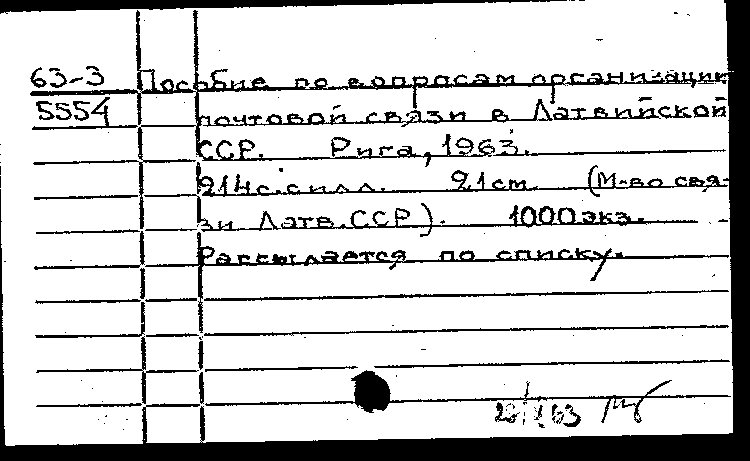 63-3 Пособие по вопросам организации
5554 почтовой связи в Латвийской
ССР. Рига, 1963.
214с.с илл. 21 cm. (М-во свя-
зи Латв. ССР). 1000 экз.
Рассылается по списку.